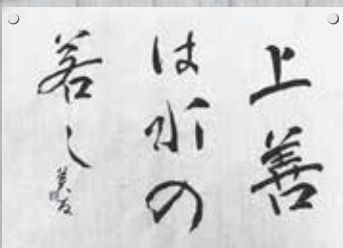 上善
は水の
若し